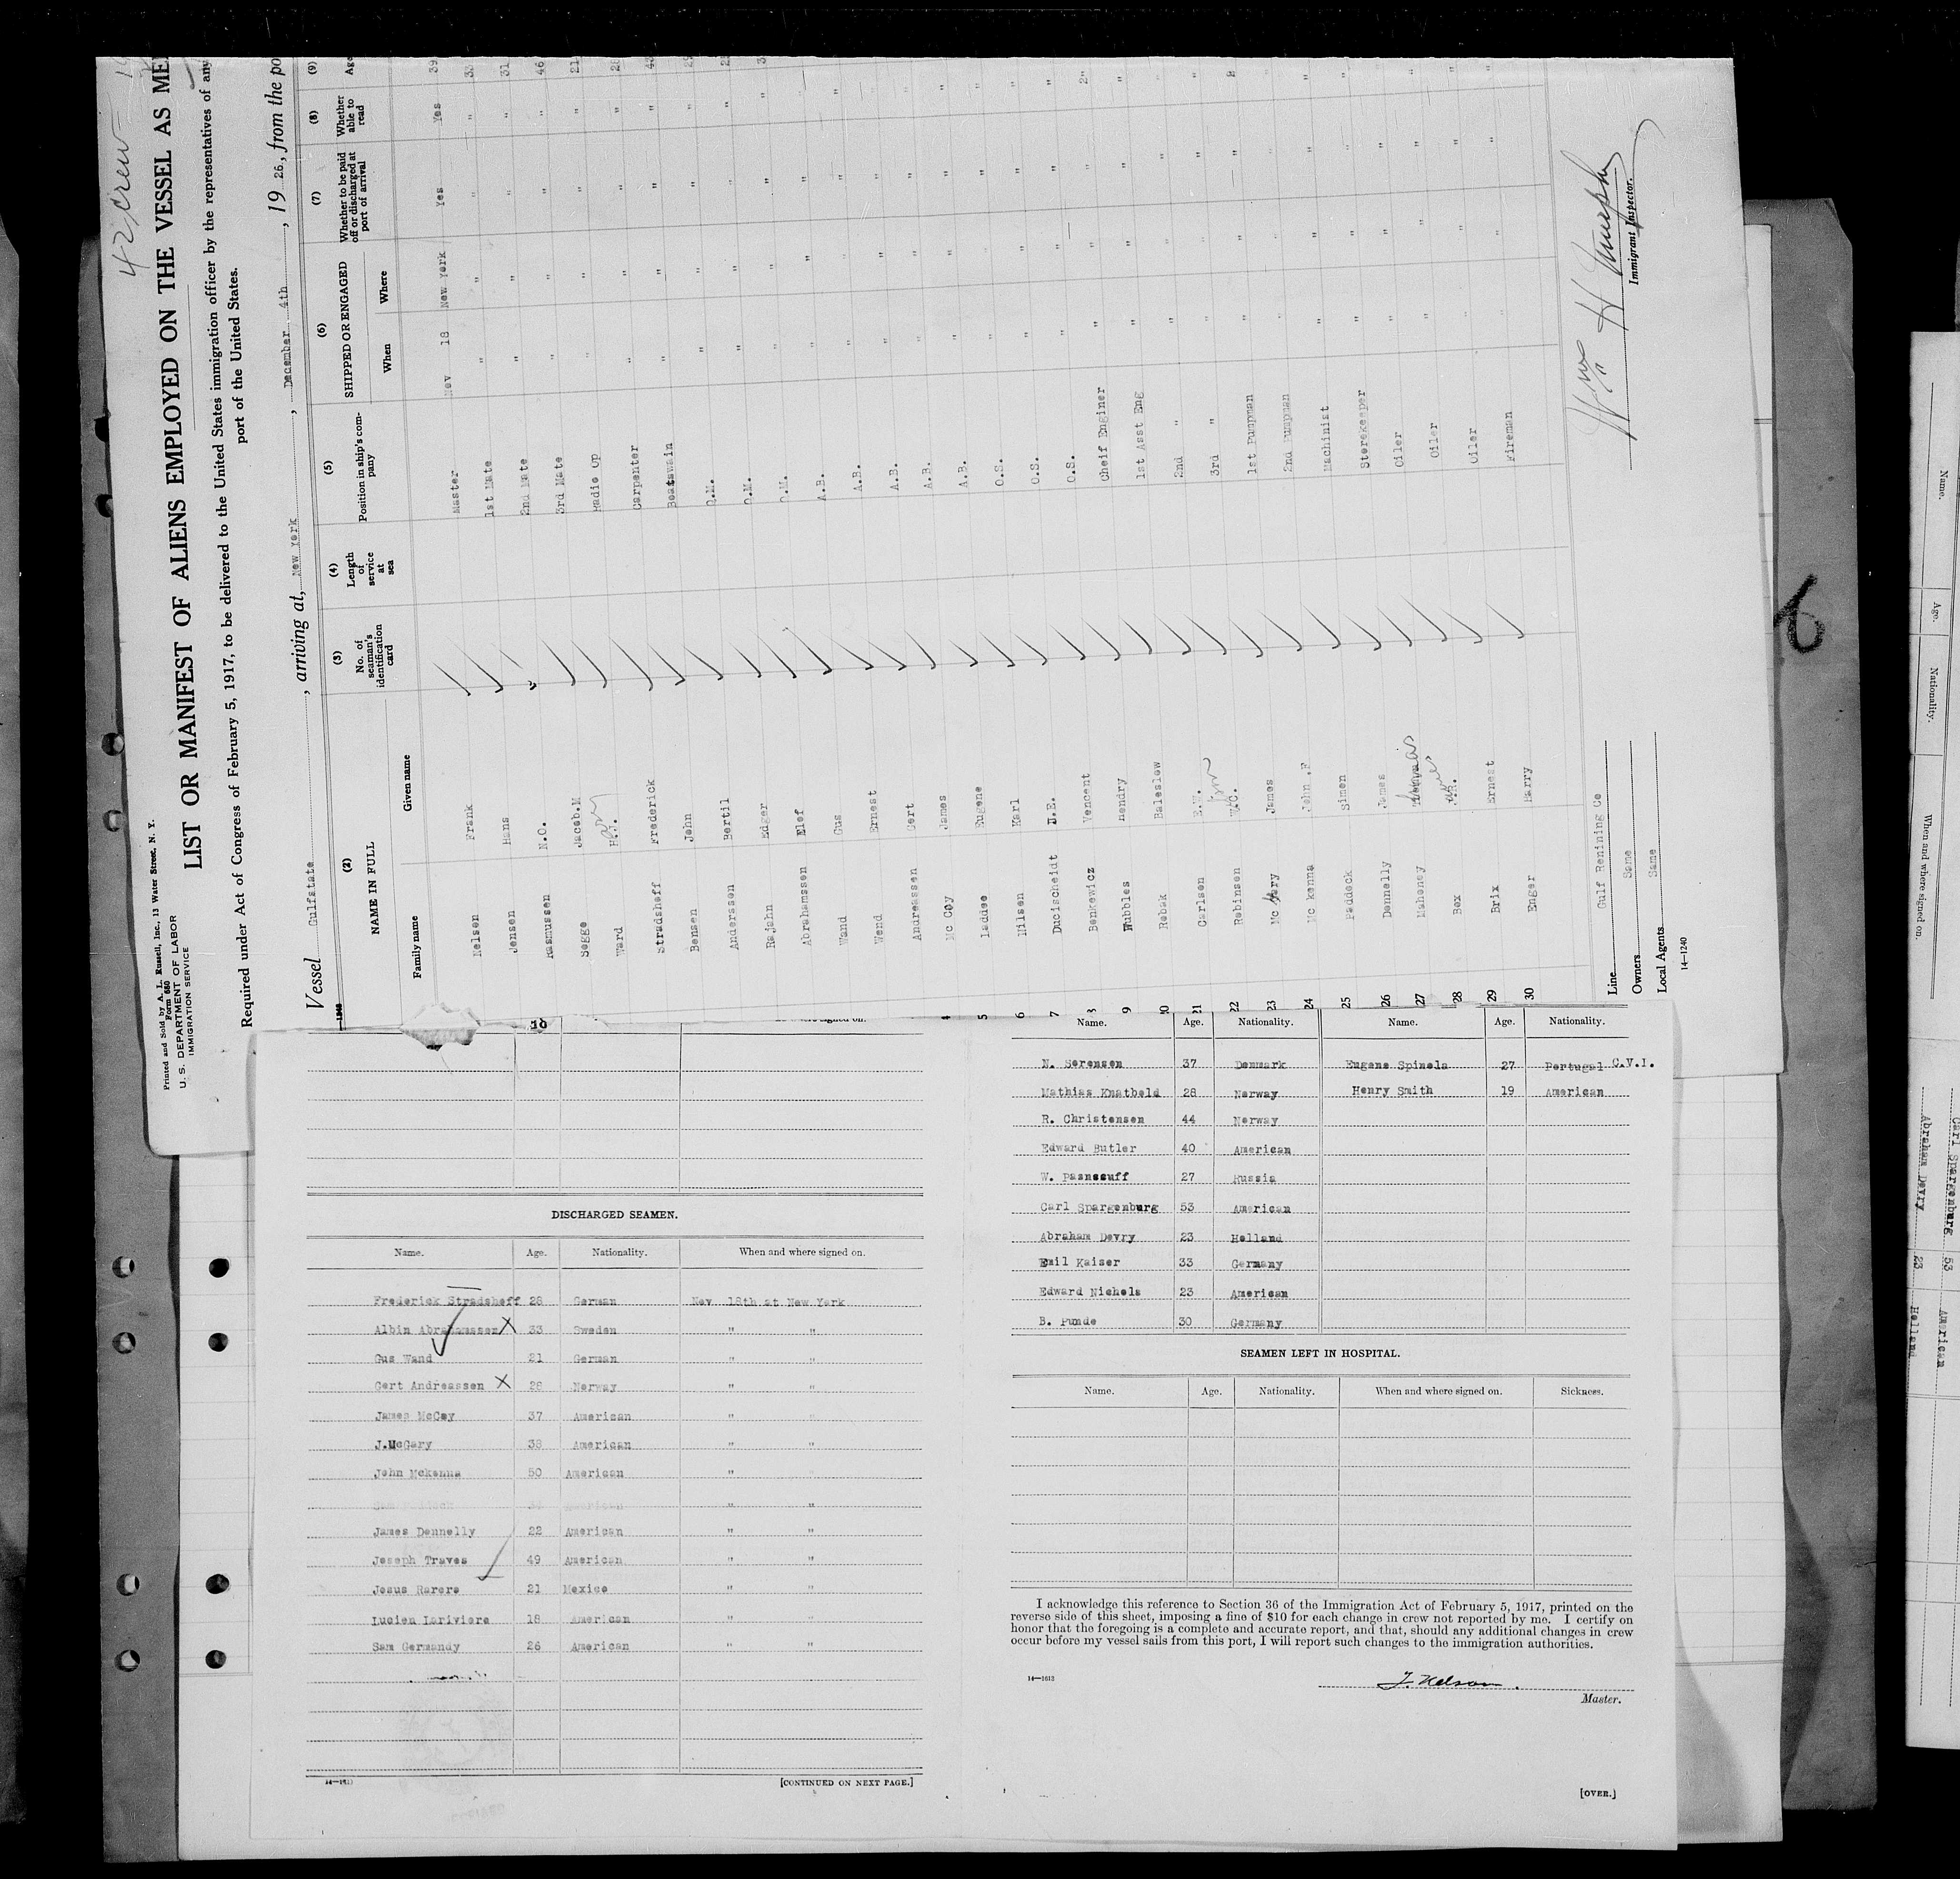 42 crew
Printed and Sold by A. L. Russell, Inc., 13 Water Street, N. Y.
Form 680
U. S. DEPARTMENT OF LABOR
IMMIGRATION SERVICE
LIST OR MANIFEST OF ALIENS EMPLOYED ON THE VESSEL AS ME
Required under Act of Congress of February 5, 1917, to be delivered to the United States immigration officer by the representatives of any
port of the United States.
Vessel Gulfstate, arriving at, New York, December 4th, 19 26, from the po
(2) (3) (4) (5) (6) (7) (8) (9)
NAME IN FULL No. of seaman's identification card Length of service at sea Position in ship's company SHIPPED OR ENGAGED Whether to be paid off or discharged at port of arrival Whether able to read Age
Family name Given name When Where
Nelsen Frank Master Nov 18 New York Yes Yes 39
Jensen Hans 1st Mate " " " "
Rasmussen N.O. 2nd Mate " " " " 31
Segge Jacob.M 3rd Mate " " " " 46
Ward H.J. Harry Radio Op " " " " 21
Stradsheff Frederick Carpenter " " " " 28
Bensen John Boatswain " " " "
Anderssen Bertil Q.M. " " " "
Rajahn Edger Q.M. " " " "
Abrahamssen Elef Q.M. " " " "
Wand Gus A.B. " " " "
Wend Ernest A.B. " " " "
Andreassen Gert A.B. " " " "
Mc Coy James A.B. " " " "
Laddee Eugene A.B. " " " "
6 Nilsen Karl O.S. " " " "
7 Ducischeidt D.E. O.S. " " " "
8 Benkewicz Vencent O.S. " " " "
9 Hubbles Hendry Cheif Enginer " " " "
20 Rebak Baleslew 1st Asst Eng " " " "
21 Carlsen E.W. 2nd " " " " "
22 Robinsen W.C. 3rd " " " " "
23 Mc Gary James 1st Pumpman " " " "
24 Mc kenna John .F 2nd Pumpman " " " "
25 Paddock Simen Machinist " " " "
26 Dennelly James Storekeeper " " " "
27 Mahoney Thomas Oiler " " " "
28 Box Oiler " " " "
29 Brix Ernest Oiler " " " "
30 Enger Harry Fireman " " " "
Line Gulf Refining Co
Owners Same
Local Agents Same
14—1240
Wm H Murphy
Immigrant Inspector.
6
DISCHARGED SEAMEN.
Name. Age. Nationality. When and where signed on.
Frederick Stradsheff 28 German Nov 18th at New York
Albin Abrahamssen X 33 Sweden " "
Gus Wand 21 German " "
Gert Andreassen X 28 Norway " "
James McCoy 37 American " "
J.McGary 38 American " "
John Mckenna 50 American " "
" "
James Dennelly 22 American " "
Joseph Traves 49 American " "
Jesus Rarere 21 Mexico " "
Lucien Lariviere 18 American " "
Sam Germandy 26 American " "
[CONTINUED ON NEXT PAGE.]
Name. Age. Nationality. Name. Age. Nationality.
N. Sorensen 37 Denmark Eugene Spinola 27 Portugal C.V.I.
Mathias Knatbold 28 Norway Henry Smith 19 American
R. Christensen 44 Norway
Edward Butler 40 American
W. Pasnscuff 27 Russia
Carl Spargenburg 53 American
Abraham Devry 23 Holland
Emil Kaiser 33 Germany
Edward Nichols 23 American
B. Punde 30 Germany
SEAMEN LEFT IN HOSPITAL.
Name. Age. Nationality. When and where signed on. Sickness.
I acknowledge this reference to Section 36 of the Immigration Act of February 5, 1917, printed on the
reverse side of this sheet, imposing a fine of $10 for each change in crew not reported by me. I certify on
honor that the foregoing is a complete and accurate report, and that, should any additional changes in crew
occur before my vessel sails from this port, I will report such changes to the immigration authorities.
14—1613
F. Nelson.
Master.
[OVER.]
Name. Age. Nationality. When and where signed on.
Carl Spargenburg 53 American
Abraham Devry 23 Holland